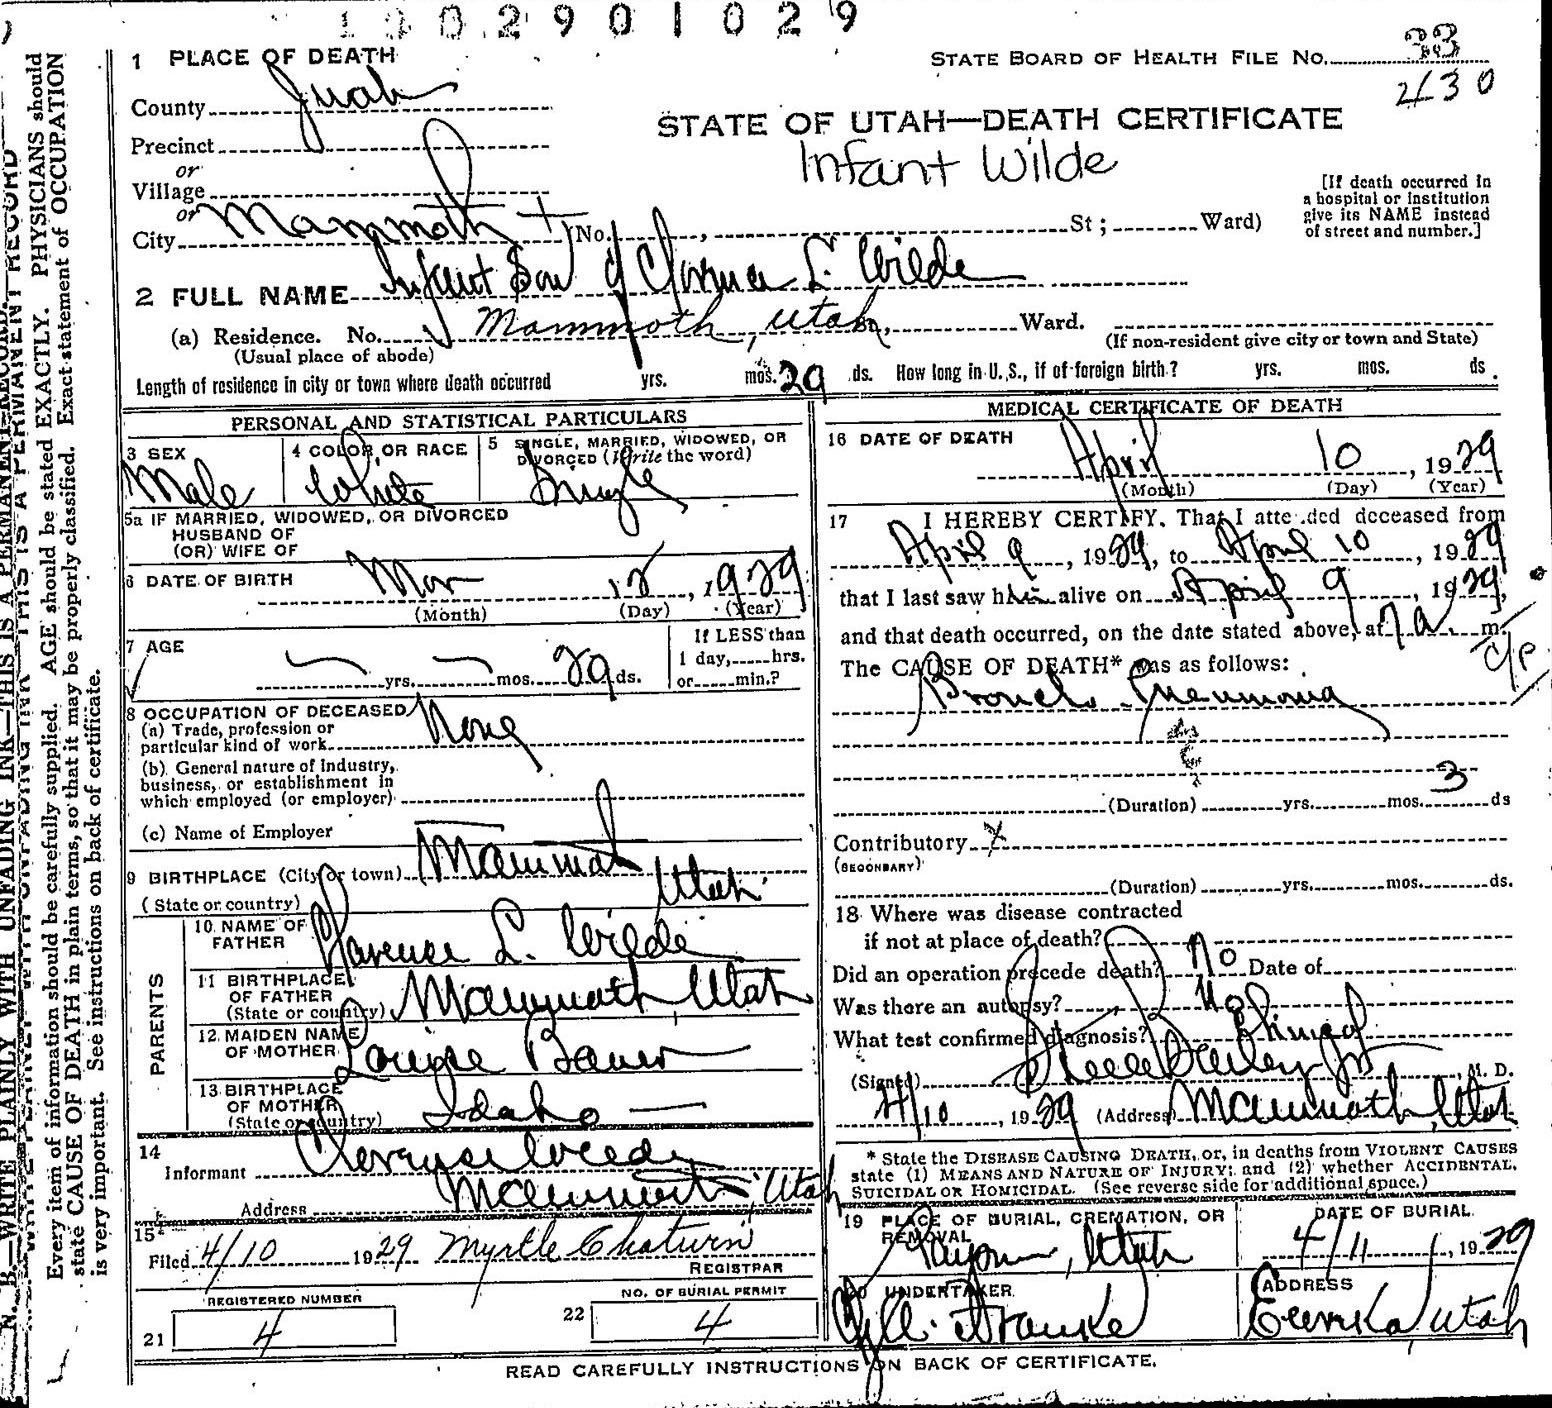 1002901029
1 PLACE OF DEATH
STATE BOARD OF HEALTH FILE No. 33
430
County Juab
STATE OF UTAH—DEATH CERTIFICATE
Infant Wilde
Precinct
or
Village
or
City Mammoth (No. , St; Ward)
[If death occurred in
a hospital or institution
give its NAME instead
of street and number.]
2 FULL NAME Infant Son of L. Wilde
(a) Residence. No. Mammoth, Utah St., Ward.
(Usual place of abode) (If non-resident give city or town and State)
Length of residence in city or town where death occurred yrs. mos. 29 ds. How long in U.S., if of foreign birth? yrs. mos. ds.
PERSONAL AND STATISTICAL PARTICULARS
3 SEX
Male
4 COLOR OR RACE
White
5 SINGLE, MARRIED, WIDOWED, OR
DIVORCED (Write the word)
Single
5a IF MARRIED, WIDOWED, OR DIVORCED
HUSBAND OF
(OR) WIFE OF
6 DATE OF BIRTH Mar 12, 1929
(Month) (Day) (Year)
7 AGE
yrs. mos. 29 ds.
If LESS than
1 day, hrs.
or min.?
8 OCCUPATION OF DECEASED
(a) Trade, profession or
particular kind of work None
(b) General nature of Industry,
business, or establishment in
which employed (or employer)
(c) Name of Employer
9 BIRTHPLACE (City or town) Mammoth
(State or country) Utah
PARENTS
10 NAME OF
FATHER Clarence L. Wilde
11 BIRTHPLACE
OF FATHER
(State or country) Mammoth Utah
12 MAIDEN NAME
OF MOTHER Louise Bauer
13 BIRTHPLACE
OF MOTHER
(State or country) Idaho
14
Informant Clarence Wilde
Address Mammoth, Utah
15
Filed 4/10 1929 Myrtle Chatwin
REGISTRAR
REGISTERED NUMBER
21 4
NO. OF BURIAL PERMIT
22 4
MEDICAL CERTIFICATE OF DEATH
16 DATE OF DEATH April 10, 1929
(Month) (Day) (Year)
17 I HEREBY CERTIFY, That I attended deceased from
April 9, 1929, to April 10, 1929
that I last saw him alive on April 9, 1929,
and that death occurred, on the date stated above, at 7 a. m.
The CAUSE OF DEATH* was as follows:
Broncho Pneumonia
(Duration) yrs. mos. 3 ds
Contributory
(SECONDARY)
(Duration) yrs. mos. ds.
18 Where was disease contracted
if not at place of death?
Did an operation precede death? No Date of
Was there an autopsy? No
What test confirmed diagnosis?
(Signed) Steele Bailey Jr, M. D.
4/10, 1929 (Address) Mammoth, Utah
* State the DISEASE CAUSING DEATH, or, in deaths from VIOLENT CAUSES
state (1) MEANS AND NATURE OF INJURY; and (2) whether ACCIDENTAL,
SUICIDAL OR HOMICIDAL. (See reverse side for additional space.)
19 PLACE OF BURIAL, CREMATION, OR
REMOVAL
Payson, Utah
DATE OF BURIAL
4/11, 1929
20 UNDERTAKER
ADDRESS
Eureka, Utah
READ CAREFULLY INSTRUCTIONS ON BACK OF CERTIFICATE.
N. B.—WRITE PLAINLY WITH UNFADING INK—THIS IS A PERMANENT RECORD.
Every item of information should be carefully supplied. AGE should be stated EXACTLY. PHYSICIANS should
state CAUSE OF DEATH in plain terms, so that it may be properly classified. Exact statement of OCCUPATION
is very important. See instructions on back of certificate.